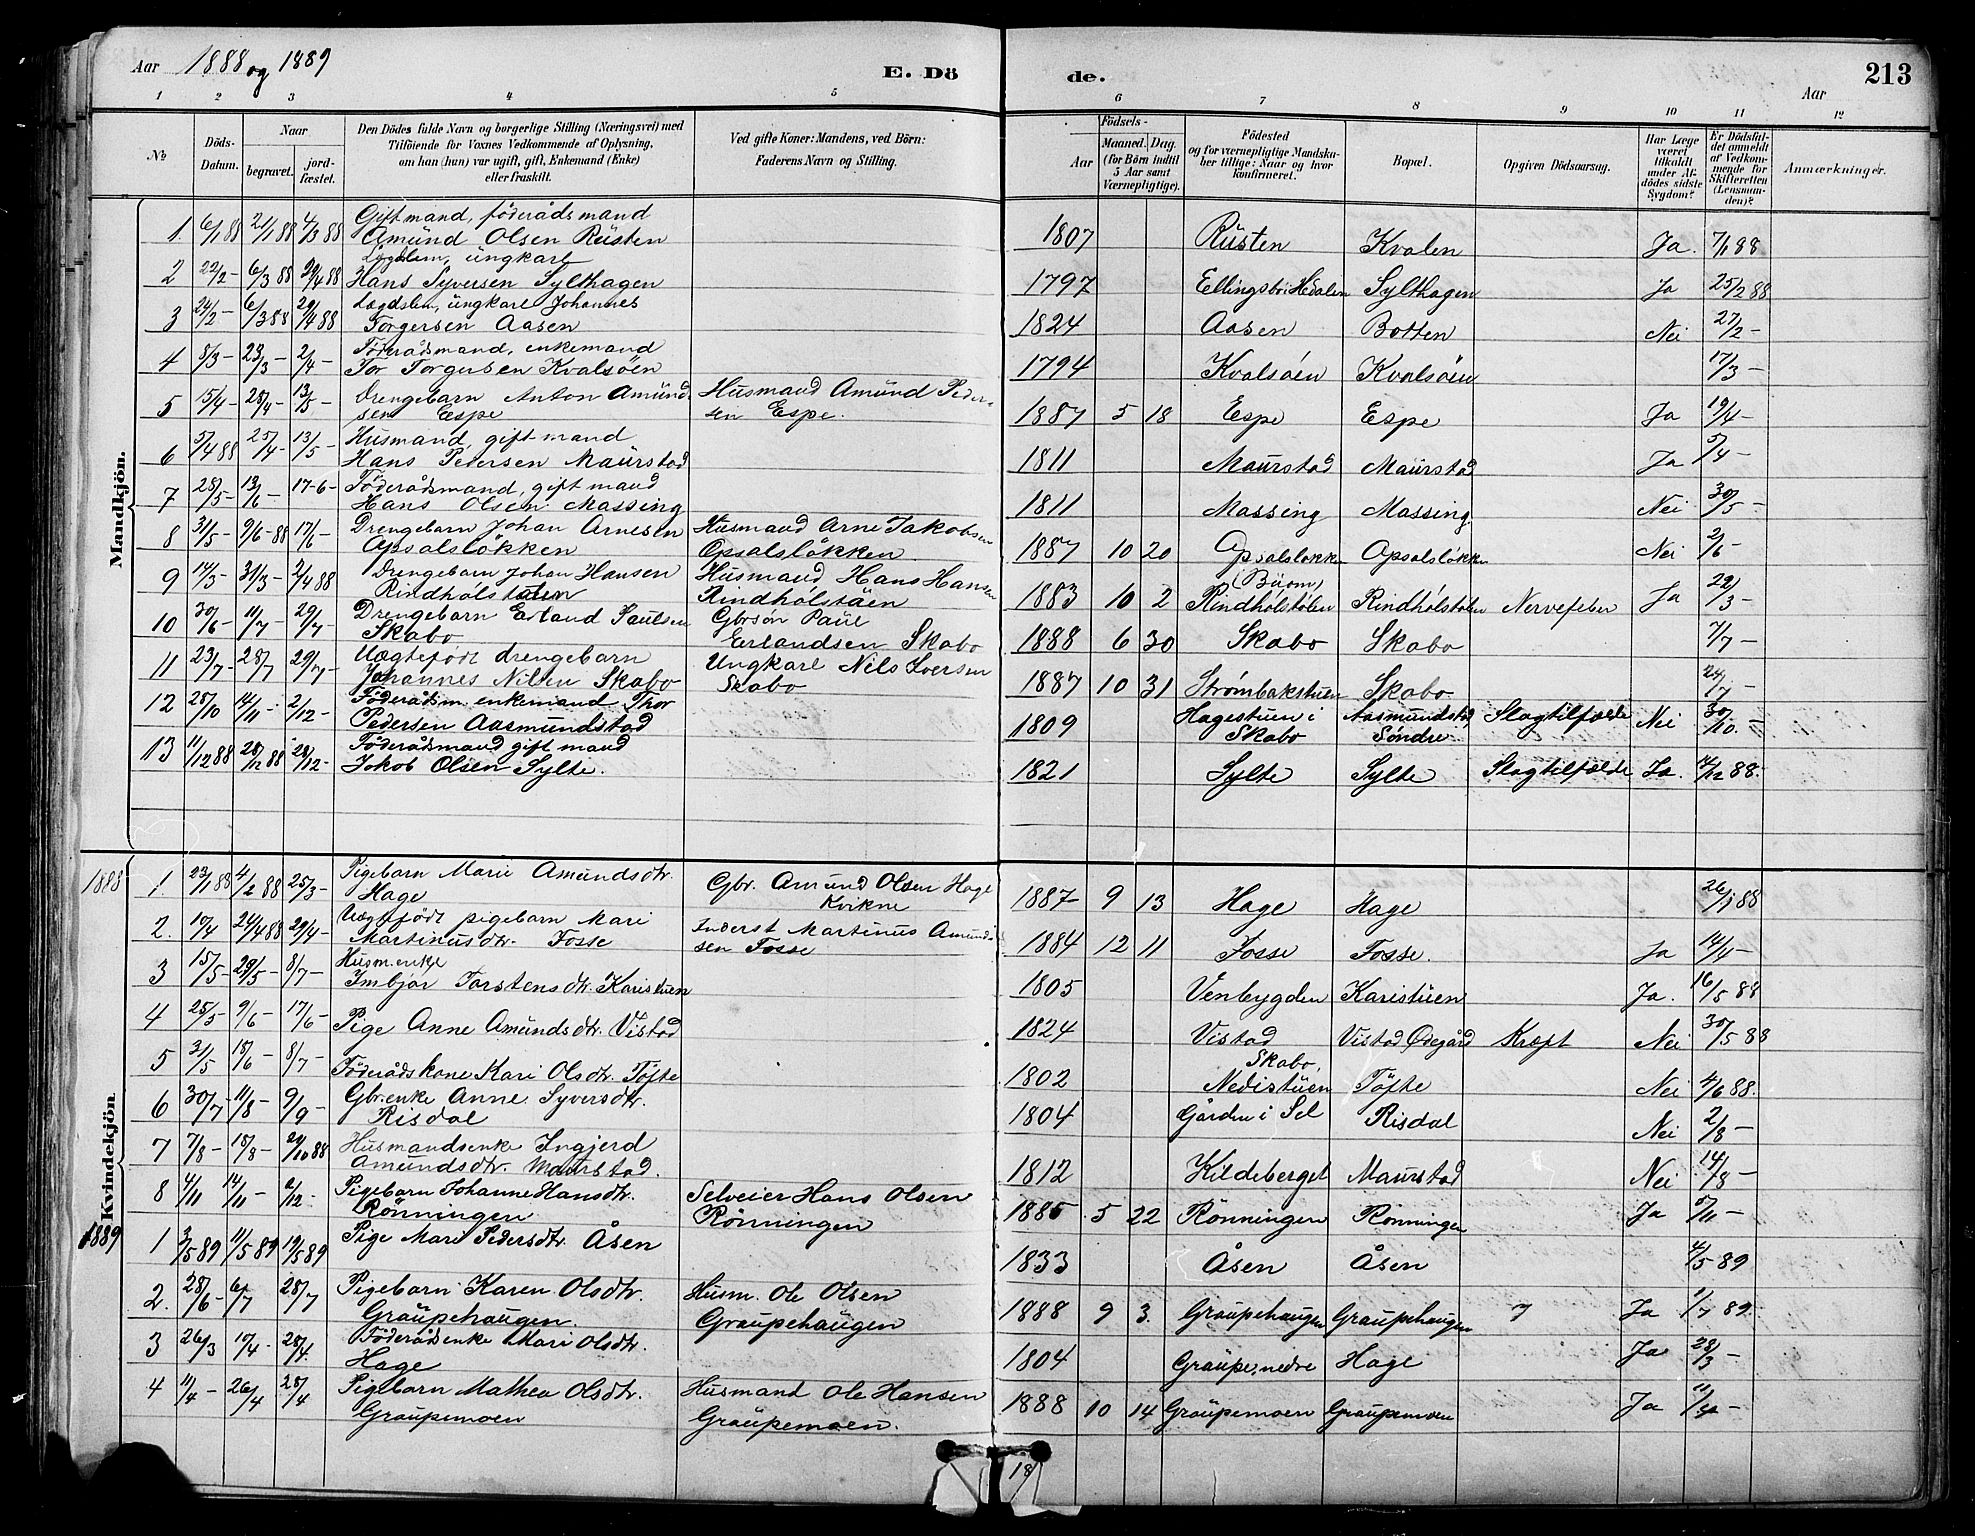 Aar 1888 og 1889 E. Dö de. Aar 213
1 2 3 4 5 6 7 8 9 10 11 12
No Döds-Datum. Naar begravet. jord-fæstet. Den Dödes fulde Navn og borgerlige Stilling (Næringsvei) med Tilföiende for Voxnes Vedkommende af Oplysning, om han (hun) var ugift, gift, Enkemand (Enke) eller fraskilt. Ved gifte Koner: Mandens, ved Börn: Faderens Navn og Stilling. Födsels- Aar Maaned. Dag. (for Börn indtil 5 Aar samt Værnepligtige). Födested og for værnepligtige Mandskaber tillige: Naar og hvor konfirmeret. Bopæl. Opgiven Dödsaarsag. Har Læge været tilkaldt under Afdödes sidste Sygdom? Er Dödsfaldet anmeldt af Vedkommende for Skifteretten (Lensmanden)? Anmærkninger.
Mandkjön.
1. 6/1 88 21/1 88 4/3 88 Gift mand, föderåds mand
Amund Olsen Rüsten 1807 Rüsten Kvalen Ja. 7/1 88
2 22/2 – 6/3 88 29/4 88 Lægdslem, ungkarl
Hans Syversen Sylthagen 1797 Ellingsbö i Hedalen Sylthagen Ja 25/2 88
3 24/2 – 6/3 88 29/4 88 Lægdslem, ungkarl Johannes
Torgersen Aasen 1824 Aasen Botten Nei 27/2 –
4 8/3 – 23/3 – 2/4 – Föderådsmand, enkemand
Tor Torgersen Kvalsöen 1794 Kvalsöen Kvalsöen 17/3 –
5 15/4 – 25/4 – 13/5 – Drengebarn Anton Amünd- Husmand Amünd Peder-
sen Espe sen Espe. 1887 5 18 Espe Espe Ja 19/4 –
6 5/4 88 25/4 – 13/5 – Husmand, gift mand
Hans Pedersen Maürstad 1811 Maurstad Maürstad Ja 5/4 –
7 25/5 – 13/6 – 17-6 – Föderådsmand, gift mand
Hans Olsen Massing 1811 Massing Massing Nei 30/5 –
8 31/5 – 9/6 – 88 17/6 – Drengebarn Johan Arnesen Husmand Arne Jakobsen
Opsalslökken Opsalslökken 1887 10 20 Opsalslokken Opsalslökken Nei 2/6 –
9 14/3 – 31/3 – 2/4 88 Drengebarn Johan Hansen Husmand Hans Hansen
Rindhölstøen Rindhölstäen 1883 10 2 (Büom) Rindhölstölen Rindhölstölen Nervefeber Ja 22/3 –
10 30/6 – 11/7 – 29/7 – Drengebarn Erland Paulsen Gbrsön Paul
Skabo Erlandsen Skabo 1888 6 30 Skabo Skabo 7/7 –
11 23/7 – 28/7 29/7 – Uægtefödt drengebarn Ungkarl Nils Iversen
Johannes Nilsen Skabo Skabo 1887 10 31 Strömbakstuen Skabo 24/7 –
12 25/10 14/11 – 2/12 – Föderådsm. enkemand Thor
Pedersen Aasmundstad 1809 Hagestuen i Skabo Aasmundstad Söndre Slagtilfælde Nei 30/10. –
13 11/12 88 28/12 88 28/12 – Föderådsmand gift mand
Jakob Olsen Sylte. 1821 Sylte Sylte Slagtilfælde Ja. 14/12 88.
Kvindekjön
1888 1. 23/1 88 4/2 88 25/3 – Pigebarn Marie Amundsdtr. Gbr. Amund Olsen Hage
Hage Kvikne 1887 – 9 13 Hage Hage 26/1 88
2. 10/4 24/4 88 29/4 – Uægtefödt pigebarn Mari Inderst Martinus Amund-
Martinusdtr. Fosse sen Fosse 1884 12 11 Fosse Fosse. Ja 14/4 –
3 15/5 – 29/5 – 8/7 – Husm.enke
Imbjør Torstensdtr. Karistuen 1805 Venbygden Karistüen Ja. 16/5 88
4 25/5 – 9/6 – 17/6 – Pige Anne Amündsdtr. Vistad 1824 Vistad Vistad Ødegård Kræft Nei 30/5 88
5 31/5 15/6 – 8/7 – Föderådskone Kari Olsdtr. Töfte 1802 Skabo, Nedistüen Töfte Nei 4/6 88.
6 30/7 11/8 – 9/9 – Gbr.enke Anne Syversdtr.
Risdal 1804 Gården i Sel Risdal Nei 2/8 –
7 7/8 – 18/8 – 24/10 88 Husmandsenke Ingjerd
Amundsdtr. Maurstad. 1812 Kildeberget Maurstad Nei 14/8 –
8 4/11 14/11 – 2/12 – Pigebarn Johanne Hansdtr. Selveier Hans Olsen
Rönningen Rönningen 1885 5 22 Rönningen Rönningen Ja 5/11 –
1889 1 3/5 89 11/5 89 19/5 89 Pige Mari Pedersdtr. Åsen 1833 Åsen Åsen 4/5 89
2. 28/6 – 6/7 28/7 Pigebarn Karen Olsdtr. Husm. Ole Olsen
Graüpehaugen. Graupehaügen 1888 9 3. Graüpehaugen Graupehaugen ? Ja 1/7 89
3 26/3 10/4 – 28/4. Föderådsenke Mari Olsdtr.
Hage 1804 Graüpe, nedre Hage Ja 28/3 –
4 11/4 – 26/4 28/4 Pigebarn Mathea Olsdtr. Husmand Ole Hansen
Graüpemoen Graüpemoen. 1888 10 14 Graüpemoen Graupemoen Ja 11/4 –
18